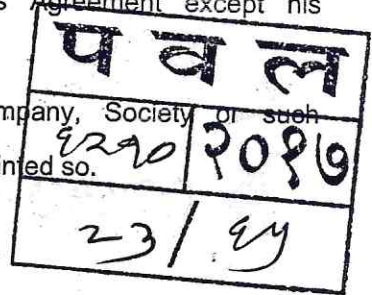 s Agreement except his
प व ल
mpany, Society or such
२०१७
nted so.